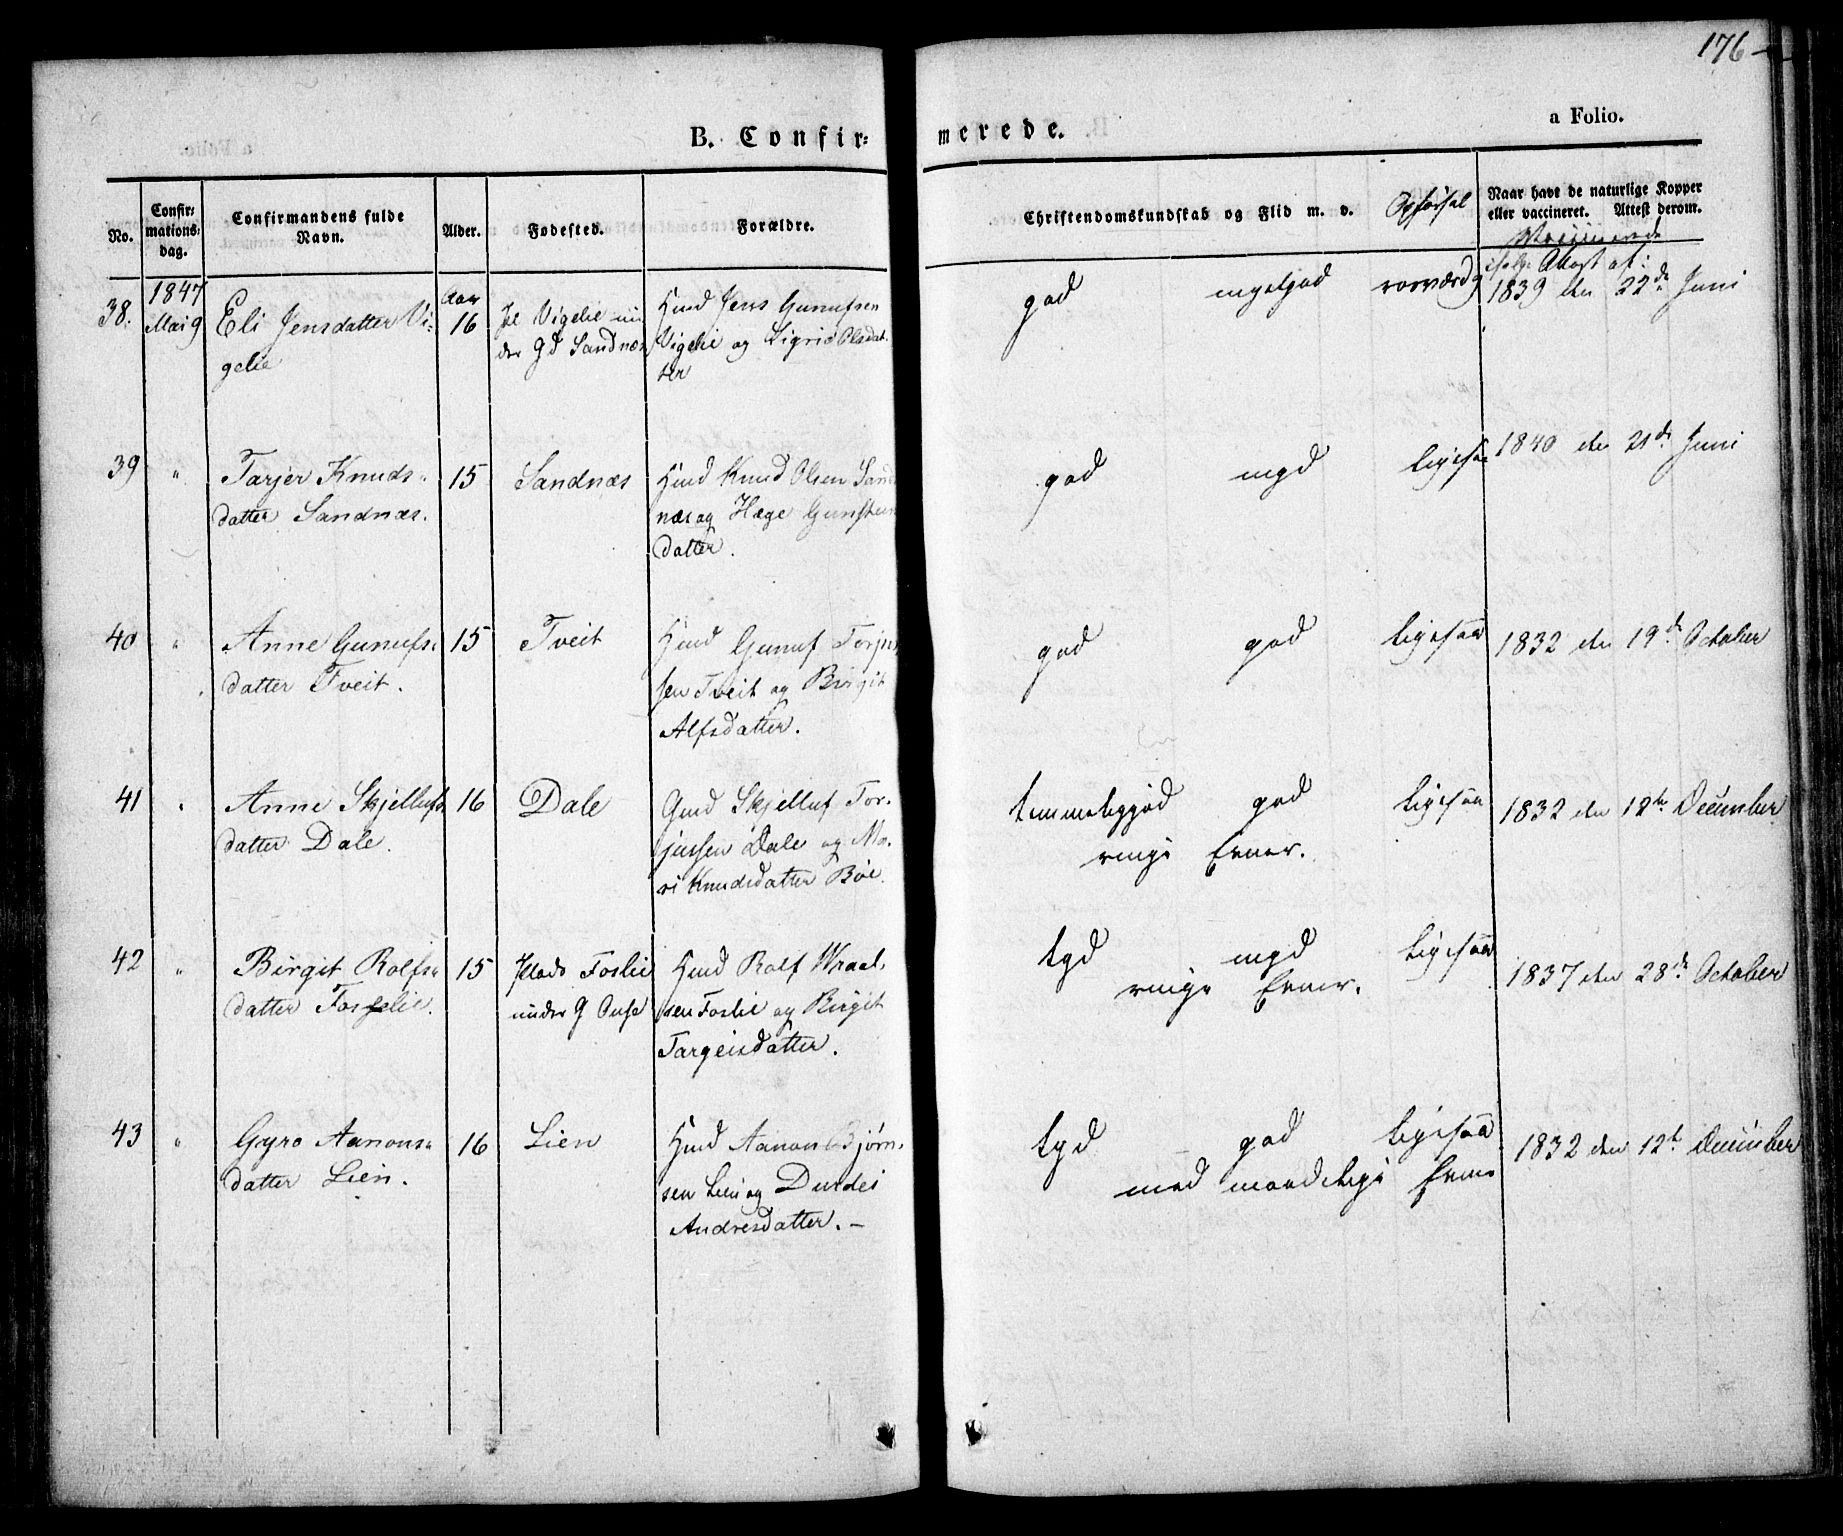 176
B. Confir-
merede.
a Folio.
No.
Confir-
mations-
dag.
Confirmandens fulde
Navn.
Alder.
Fødested.
Forældre.
Christendomskundskab og Flid m. v.
Opførsel
Naar havt de naturlige Kopper
eller vaccineret. Attest derom.
Vaccinerede
ifølge Attest af:
38.
1847
Mai 9
Eli Jensdatter Vi-
gelie
Aar
16
Pl Vigelie un
der Gd Sandnæs
Hmd Jens Gunufsen
Vigelie og Sigrid Olsdat-
ter
god
megetgod
rosværdig
1839 den 22de Juni
39
"
Tarjer Knuds-
datter Sandnæs.
15
Sandnæs
Hmd Knud Olsen Sand
næs og Hæge Gunsteen
datter.
god
mgd
ligesaa
1840 den 21de Juni
40
"
Anne Gunufs-
datter Tveit.
15
Tveit
Hmd Gunuf Torjus
sen Tveit og Birgit
Alfsdatter.
god
god
ligesaa
1832 den 19de October
41
"
Anne Skjellufs
datter Dale.
16
Dale
Gmd Skjelluf Tor-
jussen Dale og Ma-
ri Knudsdatter Bøe.
temmeliggod
god
ligesaa
ringe Evner.
1832 den 12te December
42
"
Birgit Rolfs-
datter Foslie.
15
Plads Foslie
under G Ouse
Hmd Rolf Wraal-
sen Foslie og Birgit
Targeisdatter.
tgd
mgd
ligesaa
ringe Evner.
1837 den 28de October
43
"
Gyro Aanons-
datter Lien.
16
Lien
Hmd Aanon Bjørn-
sen Lien og Durdei
Andresdatter. –
tgd
god
ligesaa
med maadelige Evner
1832 den 12te December